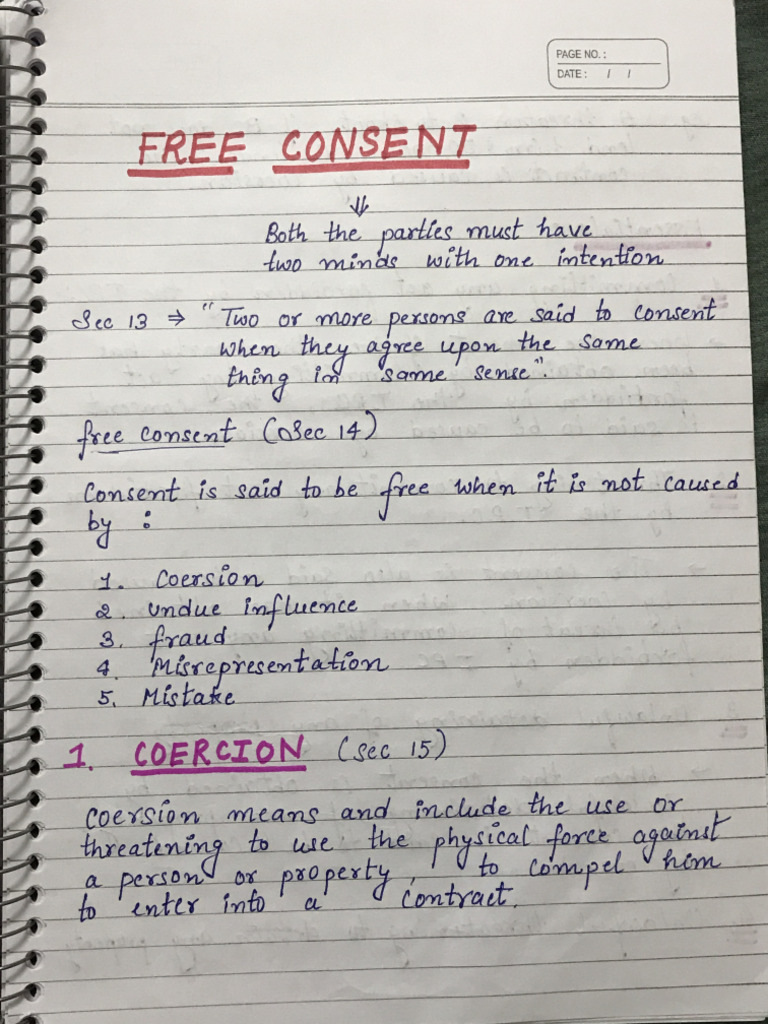 PAGE NO. :
DATE : / /
FREE CONSENT
⇓
Both the parties must have
two minds with one intention
Sec 13 ⇒ "Two or more persons are said to consent
when they agree upon the same
thing in same sense".
free consent (Sec 14)
Consent is said to be free when it is not caused
by :
1. Coersion
2. Undue influence
3. fraud
4. Misrepresentation
5. Mistake
1. COERCION (Sec 15)
Coersion means and include the use or
threatening to use the physical force against
a person or property, to compel him
to enter into a contract.